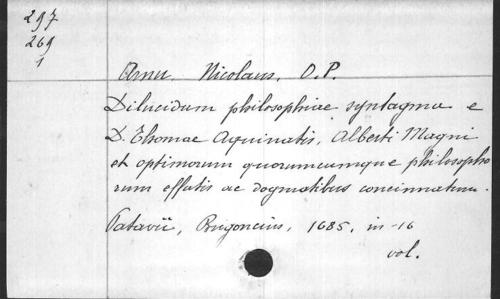 297
269
1
Arnu, Nicolaus, O.P.
Dilucidum philosophiae syntagma e
D. Thomae Aquinatis, Alberti Magni
et optimorum quorumcumque philosopho
rum effatis ac dogmatibus concinnatum.
Patavii, Brigoncius, 1685, in-16
vol.